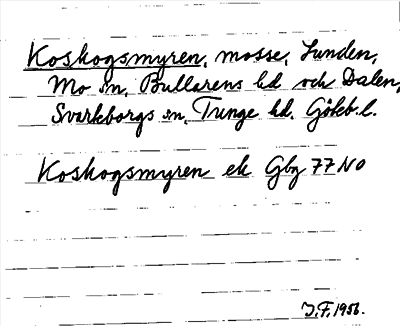 Koskogsmyren, mosse, Lunden,
Mo sn, Bullarens hd och Dalen,
Svarteborgs sn, Tunge hd. Götebl.
Koskogsmyren ek Gbg 77 NO
J.F. 1956.